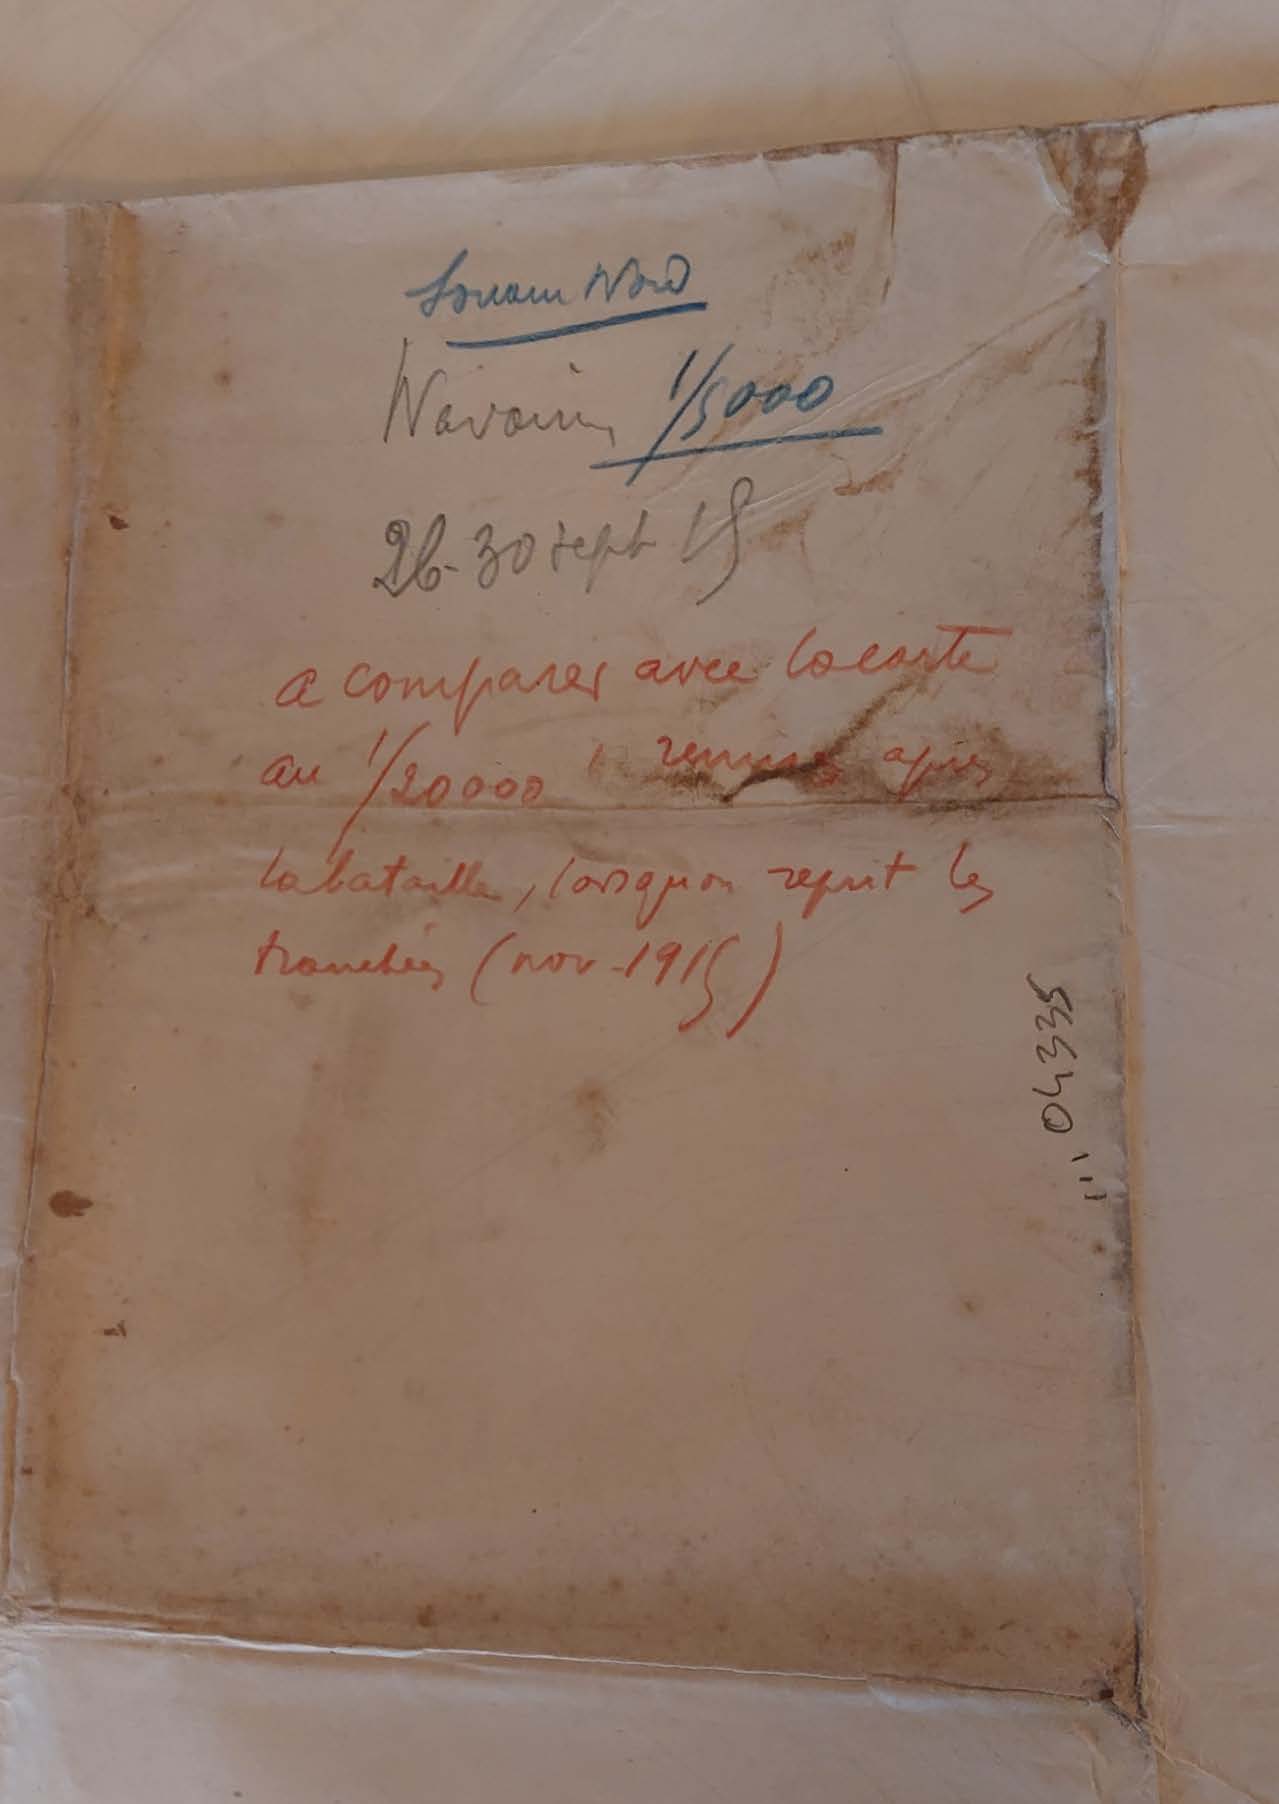 Souain Nord
Navarin 1/5000
26-30 sept 15
a comparer avec la carte
au 1/20000 remise après
la bataille, lorsqu'on reprit les
tranchées (nov-1915)
04335